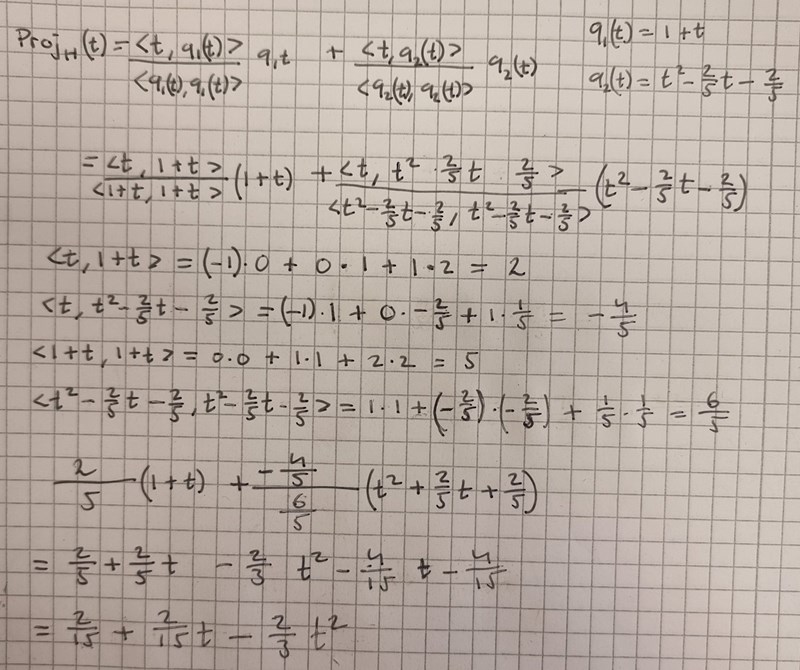 Proj_H(t) = <t, q₁(t)>/<q₁(t), q₁(t)> q₁t + <t, q₂(t)>/<q₂(t), q₂(t)> q₂(t)
q₁(t) = 1+t
q₂(t) = t² - 2/5 t - 2/5
= <t, 1+t>/<1+t, 1+t> (1+t) + <t, t² 2/5 t 2/5>/<t² - 2/5 t - 2/5, t² - 2/5 t - 2/5> (t² - 2/5 t - 2/5)
<t, 1+t> = (-1)·0 + 0·1 + 1·2 = 2
<t, t² - 2/5 t - 2/5> = (-1)·1 + 0·-2/5 + 1·1/5 = -4/5
<1+t, 1+t> = 0·0 + 1·1 + 2·2 = 5
<t² - 2/5 t - 2/5, t² - 2/5 t - 2/5> = 1·1 + (-2/5)·(-2/5) + 1/5·1/5 = 6/5
2/5 (1+t) + (-4/5)/(6/5) (t² + 2/5 t + 2/5)
= 2/5 + 2/5 t - 2/3 t² - 4/15 t - 4/15
= 2/15 + 2/15 t - 2/3 t²